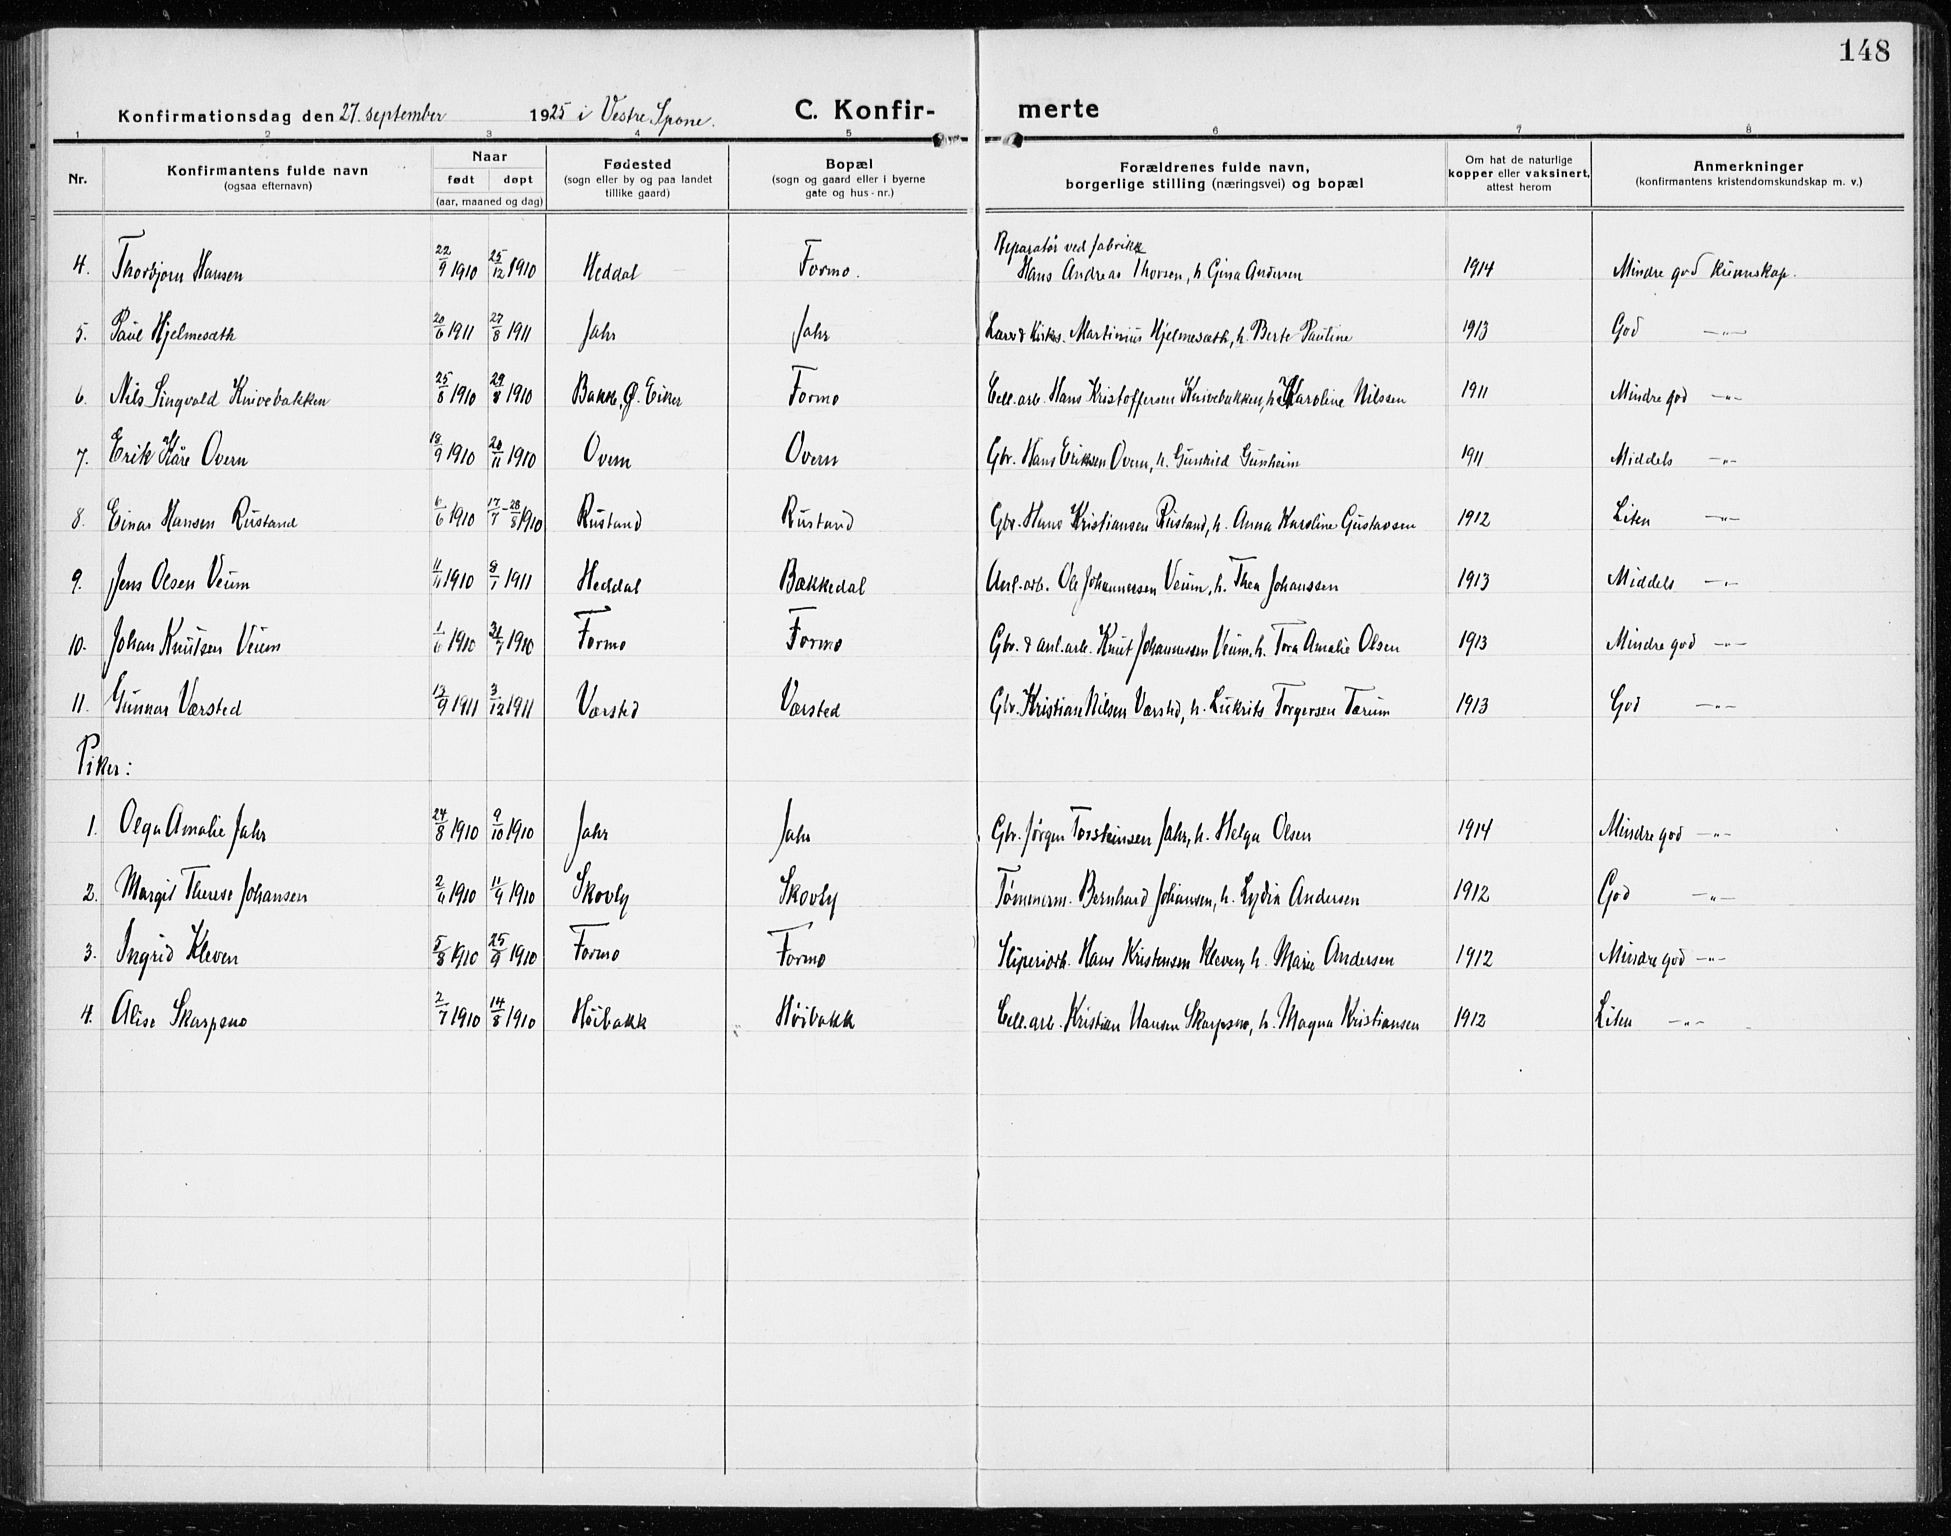 148
Konfirmationsdag den 27. september 1925 i Vestre Spone. C. Konfir- merte
1 2 3 4 5 6 7 8
Nr. Konfirmantens fulde navn (ogsaa efternavn) Naar født døpt (aar, maaned og dag) Fødested (sogn eller by og paa landet tillike gaard) Bopæl (sogn og gaard eller i byerne gate og hus-nr.) Forældrenes fulde navn, borgerlige stilling (næringsvei) og bopæl Om hat de naturlige kopper eller vaksinert, attest herom Anmerkninger (konfirmantens kristendomskundskap m. v.)
Reparatør ved fabrikk
4. Thorbjørn Hansen 22/9 1910 25/12 1910 Heddal Formo. Hans Andreas Thorsen, h. Gina Andersen 1914 Mindre god kunnskap.
5. Paul Hjelmesæth 20/6 1911 27/8 1911 Jahr Jahr Lærer & Kirkes. Martinius Hjelmesæth, h. Berte Pauline 1913 God -"-
6. Nils Singvald Knivebakken 25/8 1910 29/8 1910 Bakke, Ø. Eiker Formo Cell.arb. Hans Kristoffersen Knivebakken, h. Karoline Nilssen 1911 Mindre god -"-
7. Erik Kåre Overn 18/9 1910 20/11 1910 Overn Overn Gbr. Hans Eriksen Overn, h. Gunhild Gunheim 1911 Middels -"-
8. Einar Hansen Rustand 6/6 1910 17/7-28/8 1910 Rustand Rustand Gbr. Hans Kristiansen Rustand, h. Anna Karoline Gustavsen 1912 Liten -"-
9. Jens Olsen Veum 11/11 1910 8/1 1911 Heddal Bækkedal Anl.arb. Ole Johannessen Veum, h. Thea Johanssen 1913 Middels -"-
10. Johan Knutsen Veum 1/6 1910 31/7 1910 Formo Formo Gbr. & anl.arb. Knut Johannessen Veum, h. Tora Amalie Olsen 1913 Mindre god -"-
11. Gunnar Værsted 13/9 1911 3/12 1911 Værsted Værsted Gbr. Kristian Nilsen Værsted, h. Lukrits Torgersen Tærum 1913 God -"-
Piker:
1. Olga Amalie Jahr 24/8 1910 9/10 1910 Jahr Jahr Gbr. Jørgen Torsteinsen Jahr, h. Helga Olsen 1914 Mindre god -"-
2. Margit Therese Johansen 2/6 1910 11/9 1910 Skovly Skovly Tømmerm. Bernhard Johansen, h. Lydia Andersen 1912 God -"-
3. Ingrid Kleven 5/8 1910 25/9 1910 Formo Formo Sliperiarb. Hans Kristensen Kleven, h. Marie Andersen 1912 Mindre god -"-
4. Alise Skarpsno 2/7 1910 14/8 1910 Høibakk Høibakk Cell.arb. Kristian Hansen Skarpsno, h. Magna Kristiansen 1912 Liten -"-